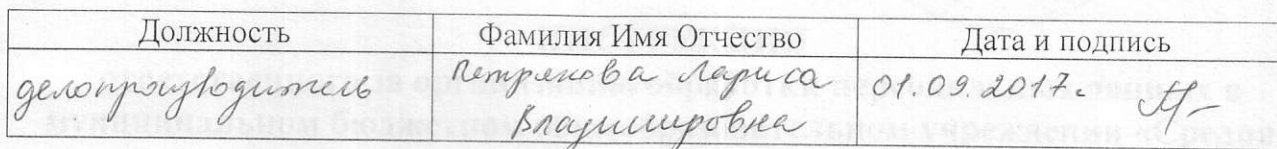 Должность Фамилия Имя Отчество Дата и подпись
делопроизводитель Петрякова Лариса 01.09.2017г.
Владимировна